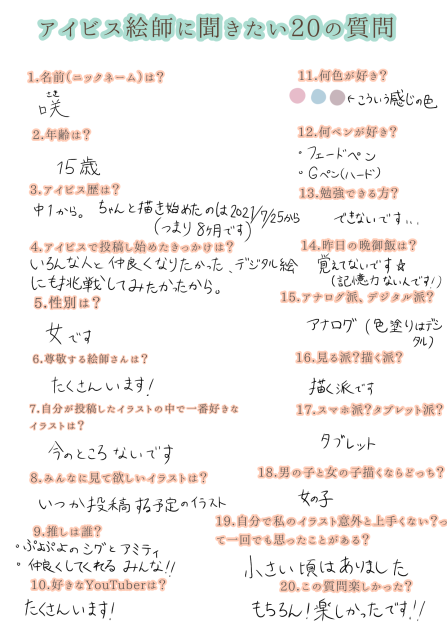 アイビス絵師に聞きたい20の質問
1.名前(ニックネーム)は?
さき
咲
2.年齢は?
15歳
3.アイビス歴は?
中1から。ちゃんと描き始めたのは2021/7/25から
(つまり8ヶ月です)
4.アイビスで投稿し始めたきっかけは?
いろんな人と仲良くなりたかった、デジタル絵
にも挑戦してみたかったから。
5.性別は?
女です
6.尊敬する絵師さんは?
たくさんいます!
7.自分が投稿したイラストの中で一番好きな
イラストは?
今のところないです
8.みんなに見て欲しいイラストは?
いつか投稿する予定のイラスト
9.推しは誰?
・ぷよぷよのシグとアミティ
・仲良くしてくれるみんな!!
10.好きなYouTuberは?
たくさんいます!
11.何色が好き?
←こういう感じの色
12.何ペンが好き?
・フェードペン
・Gペン(ハード)
13.勉強できる方?
できないです...
14.昨日の晩御飯は?
覚えてないです☆
(記憶力ないんです!)
15.アナログ派、デジタル派?
アナログ(色塗りはデジ
タル)
16.見る派?描く派?
描く派です
17.スマホ派?タブレット派?
タブレット
18.男の子と女の子描くならどっち?
女の子
19.自分で私のイラスト意外と上手くない?っ
て一回でも思ったことがある?
小さい頃はありました
20.この質問楽しかった?
もちろん!楽しかったです!!